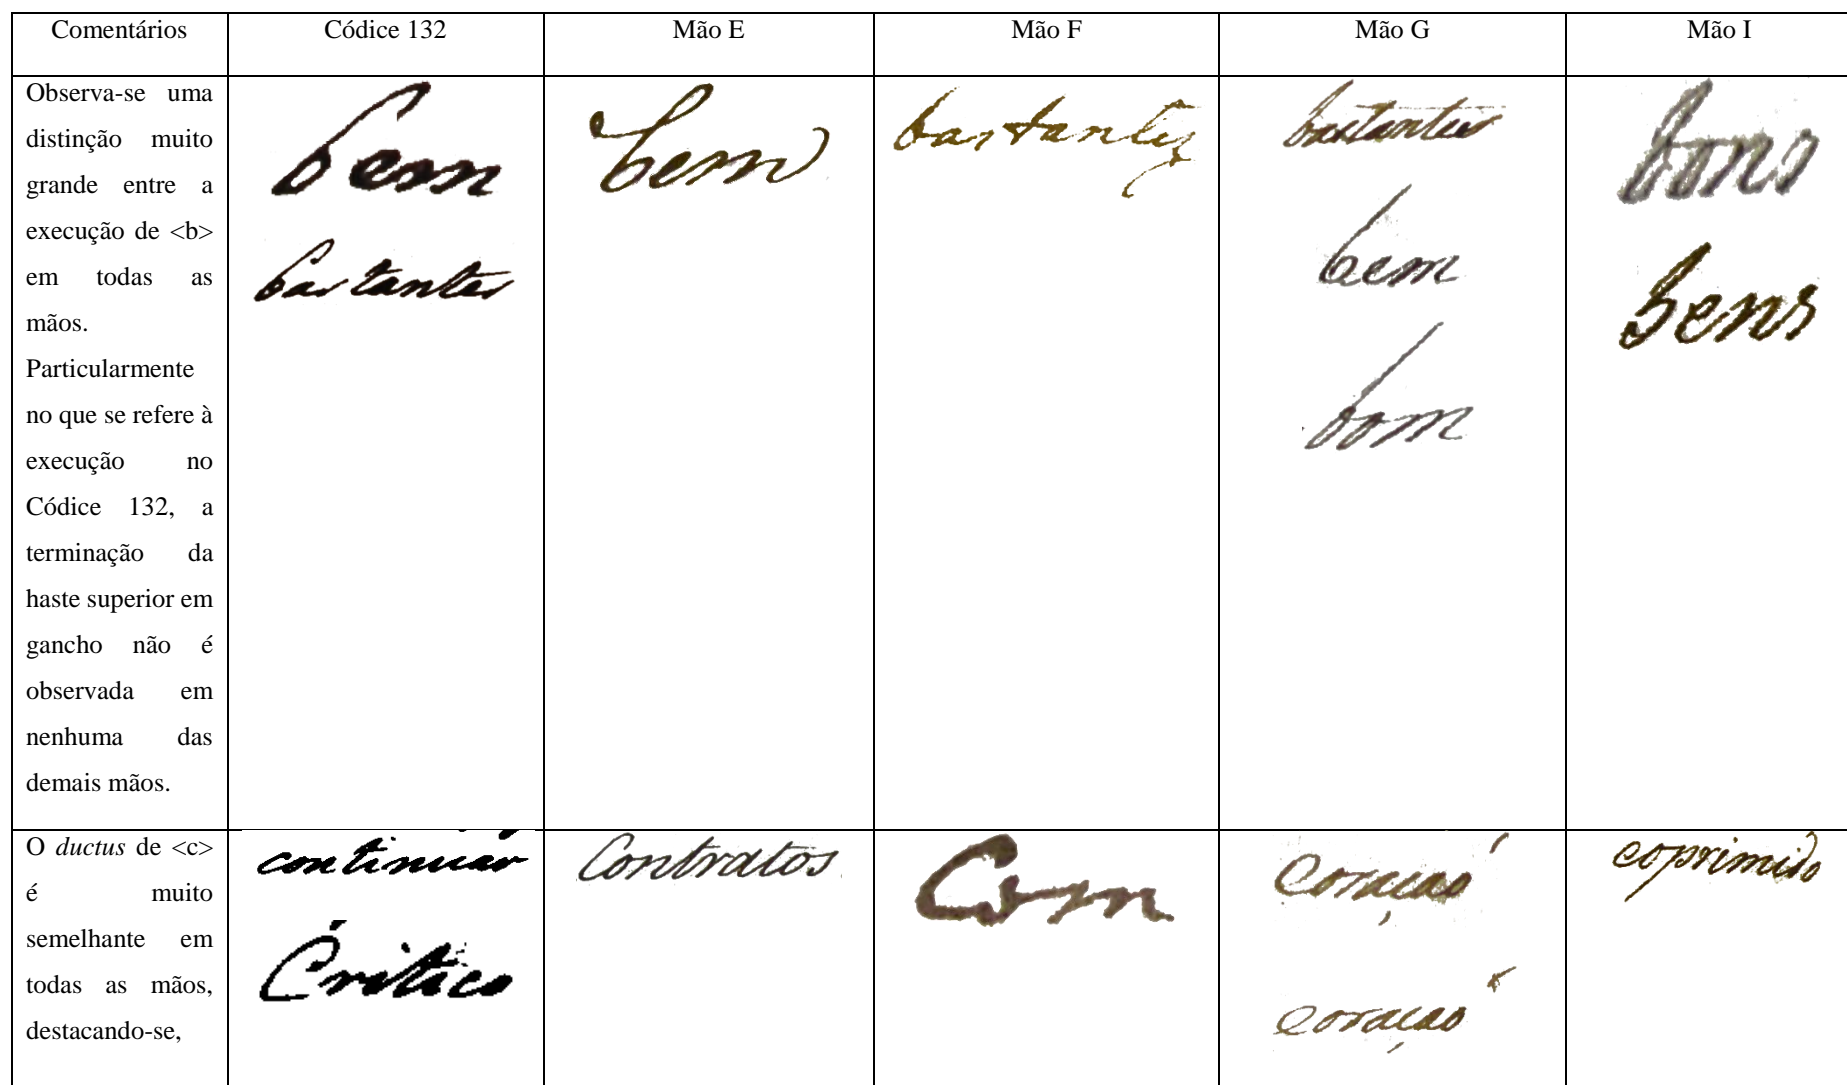 Comentários Códice 132 Mão E Mão F Mão G Mão I
Observa-se uma
distinção muito
grande entre a
execução de <b>
em todas as
mãos.
Particularmente
no que se refere à
execução no
Códice 132, a
terminação da
haste superior em
gancho não é
observada em
nenhuma das
demais mãos.
bem
bastantes
bem
bastantes
bem
bom
bons
bens
O ductus de <c>
é muito
semelhante em
todas as mãos,
destacando-se,
continuar
Crítico
Contratos
Com
Coraçaó
coraçaó
coprimido